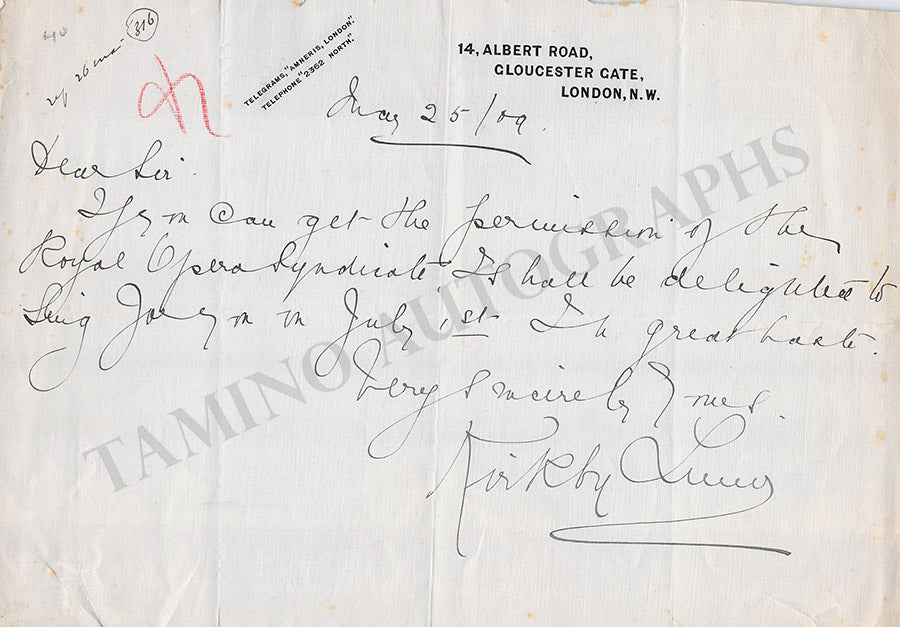 316
TELEGRAMS, "AMNERIS, LONDON."
TELEPHONE "2362 NORTH."
14, ALBERT ROAD,
GLOUCESTER GATE,
LONDON, N.W.
May 25/09.
Dear Sir.
If you can get the permission of the
Royal Opera Syndicate I shall be delighted to
Sing for you on July 1st In great haste.
Very sincerely Yours.
Kirkby Lunn
TAMINO AUTOGRAPHS